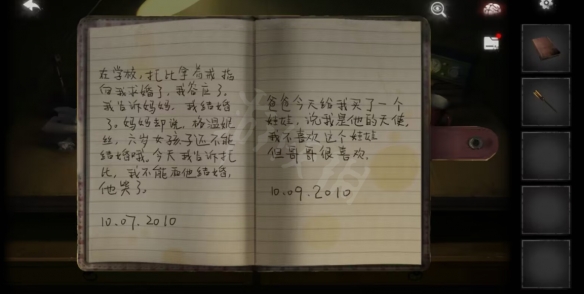 在学校,托比拿着戒指
向我求婚了,我答应了。
我告诉妈妈,我结婚
了。妈妈却说,格温妮
丝,六岁女孩子还不能
结婚哦。今天我告诉托
比,我不能跟他结婚,
他哭了。
10.07.2010
爸爸今天给我买了一个
娃娃,说我是他的天使。
我不喜欢这个娃娃
但哥哥很喜欢。
10.09.2010